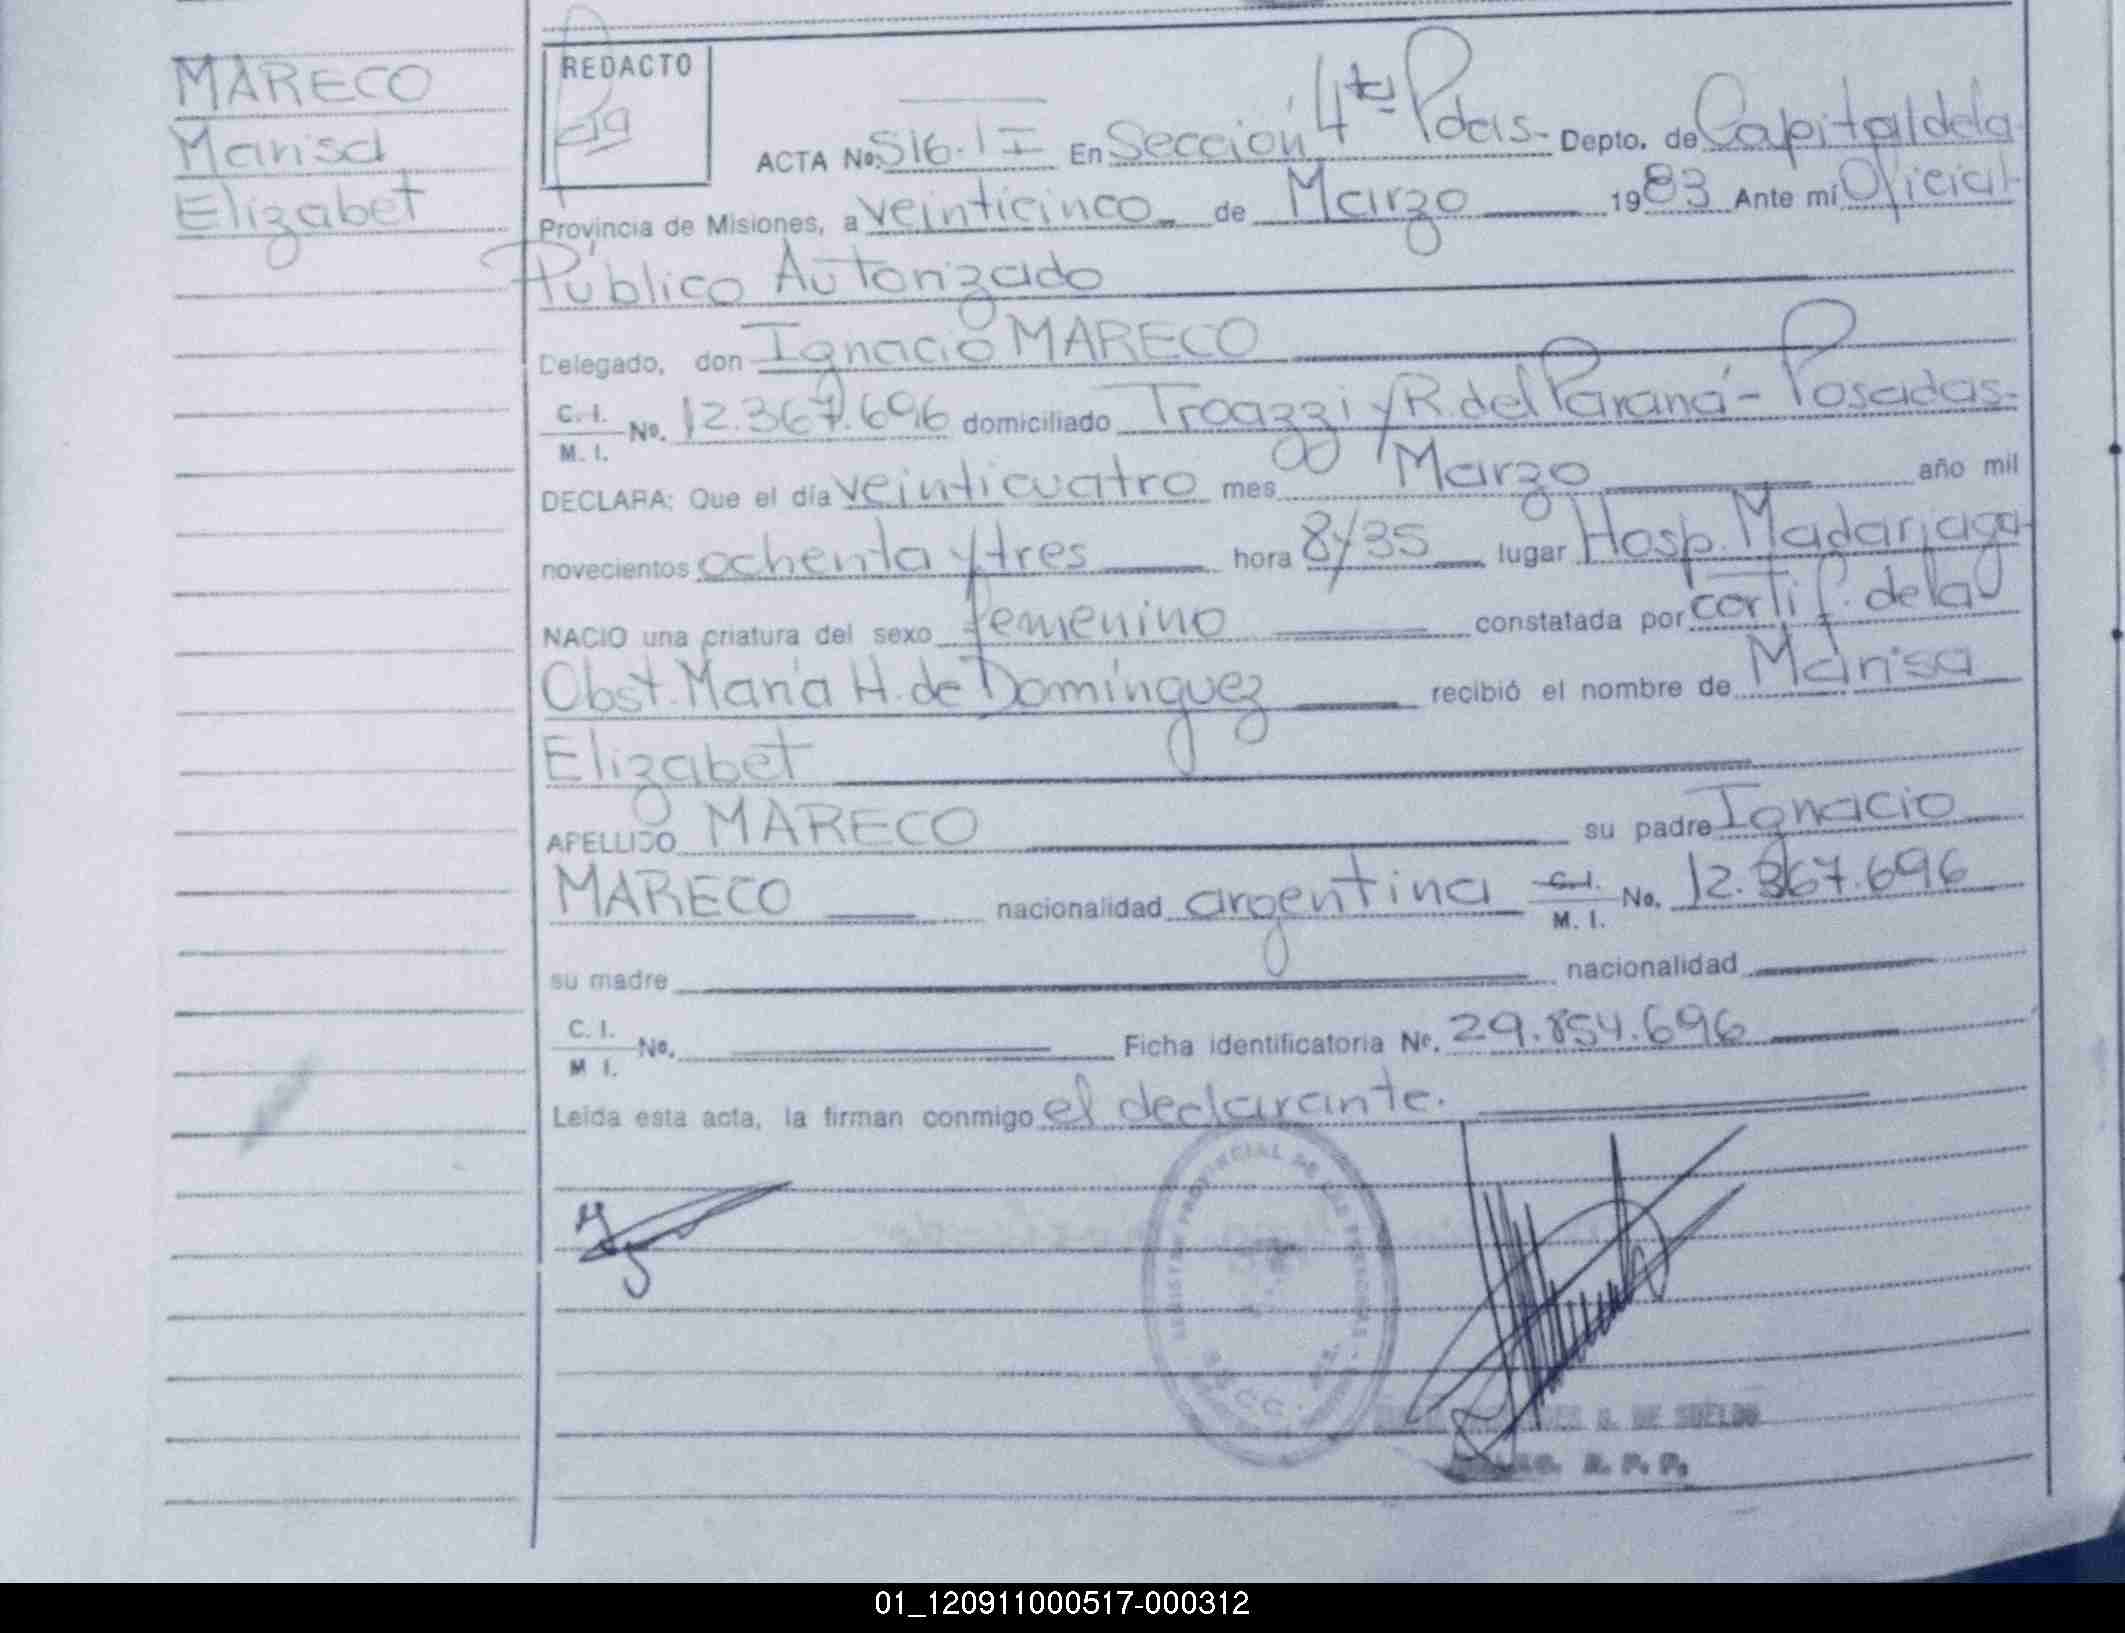 MARECO
Marisa
Elizabet
REDACTO
ACTA No. 516-I En Sección 4ta Pdas- Depto. de Capital de la
Provincia de Misiones, a veinticinco de Marzo 1983 Ante mí Oficial
Público Autorizado
Delegado, don Ignacio MARECO
C. I.
M. I.
No. 12.367.696 domiciliado Troazzi y R. del Paraná - Posadas-
DECLARA: Que el día veinticuatro mes Marzo año mil
novecientos ochenta y tres hora 8y35 lugar Hosp. Madariaga
NACIO una criatura del sexo femenino constatada por certif. de la
Obst. María H. de Domínguez recibió el nombre de Marisa
Elizabet
APELLIDO MARECO su padre Ignacio
MARECO nacionalidad argentina C.I. No. 12.367.696
M. I.
su madre nacionalidad
C. I.
M I.
No. Ficha identificatoria No. 29.854.696
Leída esta acta, la firman conmigo el declarante.
REGISTRO PROVINCIAL DE LAS PERSONAS
G. DE SUELDO
R. P. P.
01_120911000517-000312